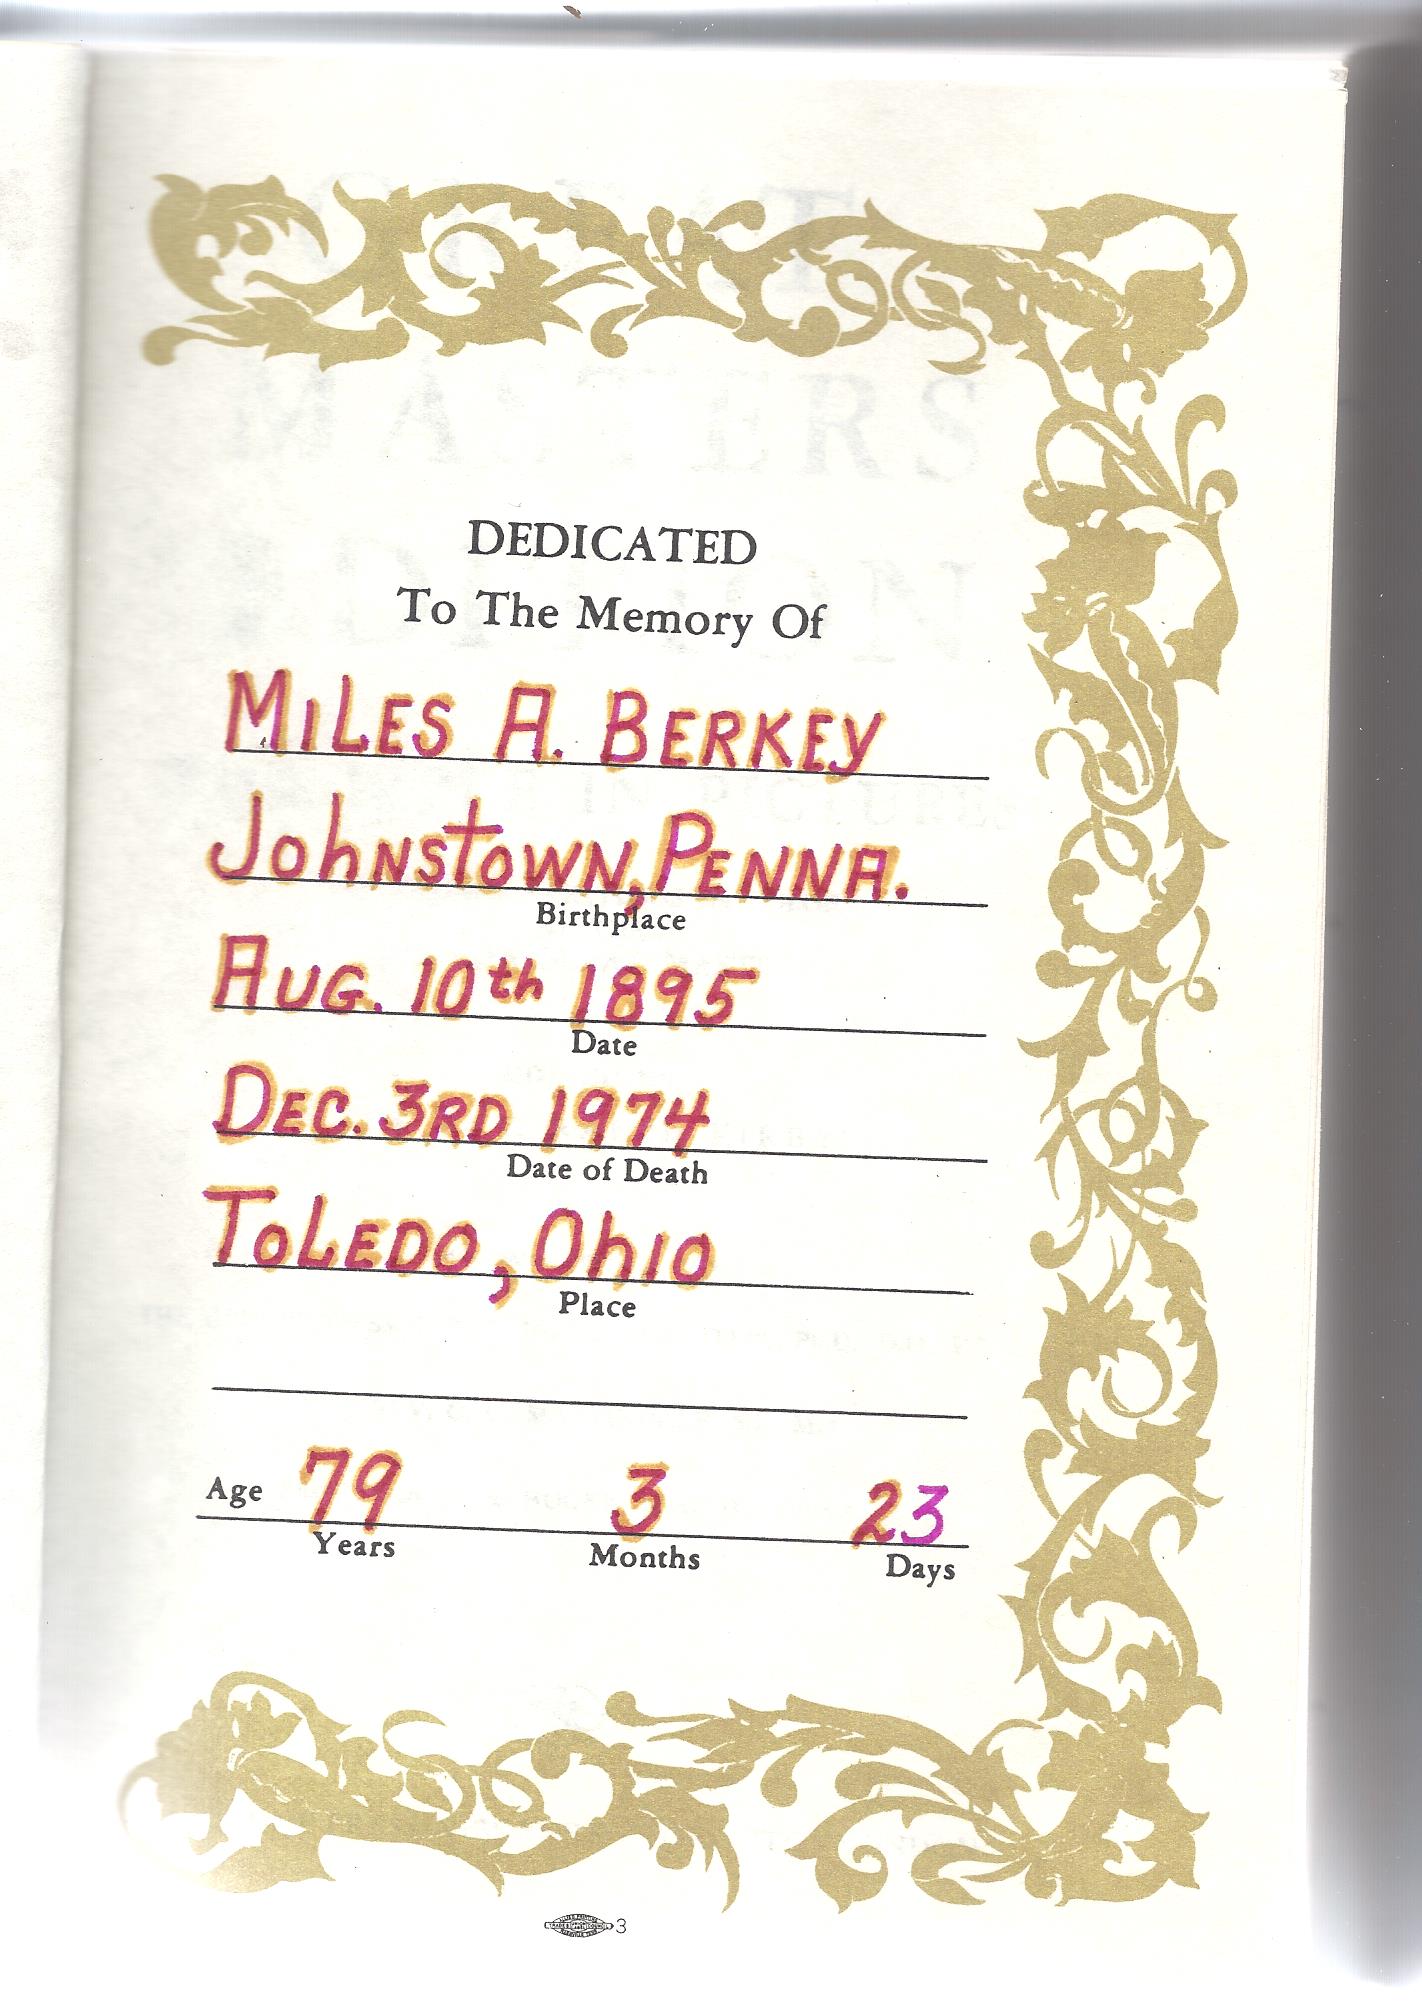 DEDICATED
To The Memory Of
MiLES A. BERKEY
JohNSTOWN, PENNA.
Birthplace
AUG. 10th 1895
Date
DEC. 3RD 1974
Date of Death
ToLEDO, OhIO
Place
Age 79 3 23
Years Months Days
3